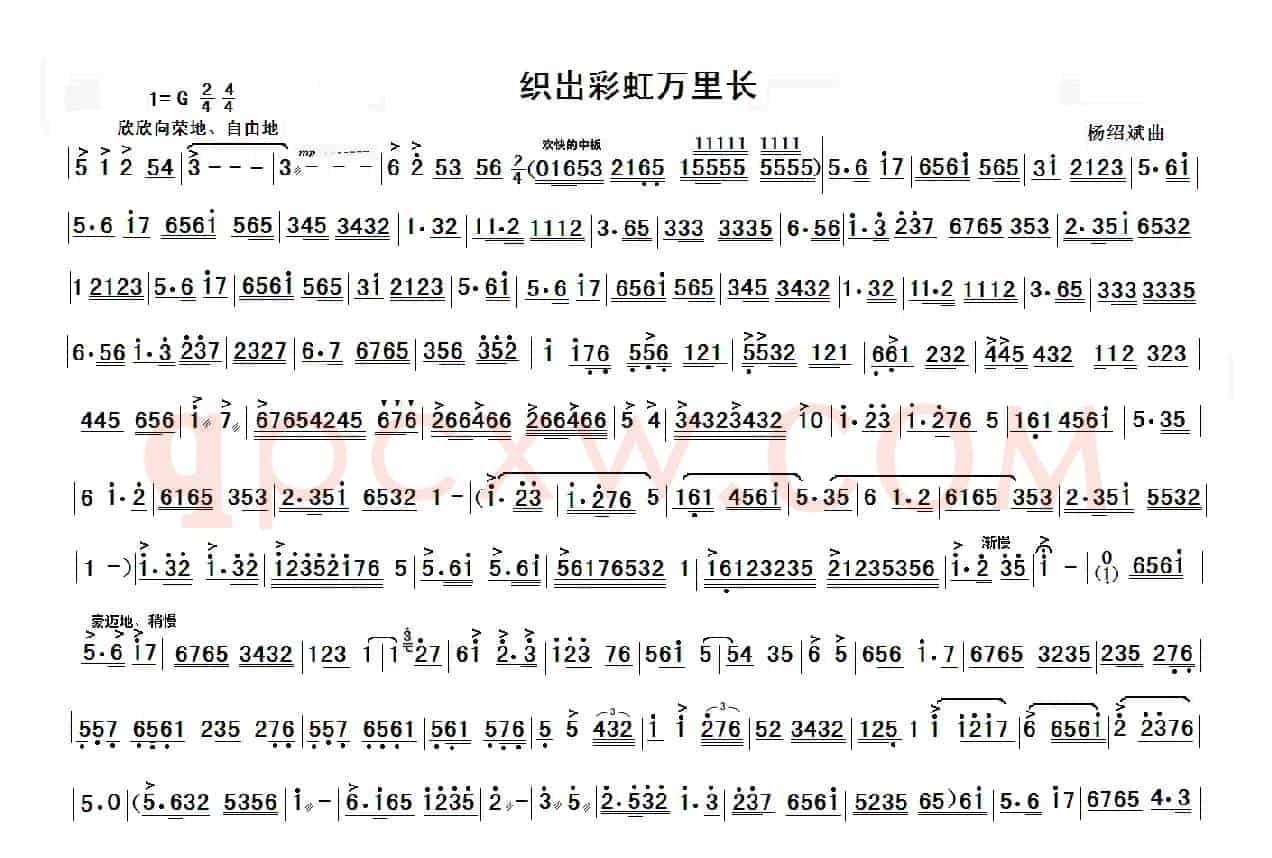 织出彩虹万里长
1=G 2/4 4/4
欣欣向荣地、自由地
杨绍斌曲
mp
欢快的中板
11111 1111
5 1 2 54 | 3 - - - | 3 | 6 2 53 56 2/4 (01653 2165 15555 5555) | 5·6 i7 | 6561 565 | 3i 2123 | 5·6i |
5·6 i7 6561 565 | 345 3432 | 1·32 | 11·2 1112 | 3·65 | 333 3335 | 6·56 | i·3 237 6765 353 | 2·35i 6532
1 2123 | 5·6 i7 | 656i 565 | 3i 2123 | 5·6i | 5·6 i7 | 656i 565 | 345 3432 | 1·32 | 11·2 1112 | 3·65 | 333 3335
6·56 | i·3 237 | 2327 | 6·7 6765 | 356 352 | i i76 556 121 | 5532 121 | 661 232 | 445 432 112 323 |
445 656 | i 7 | 67654245 676 | 266466 266466 | 5 4 | 34323432 i0 | i·23 | i·276 5 | 161 456i | 5·35 |
6 i·2 | 6165 353 | 2·35i 6532 1 - | (i·23 | i·276 5 | 161 456i | 5·35 | 6 1·2 | 6165 353 | 2·35i 5532 |
渐慢
1 -) | i·32 i·32 | i2352i76 5 | 5·6i 5·6i | 56176532 1 | 16123235 21235356 | i·2 35 | i - | 0 (1) 656i |
豪迈地、稍慢
5·6 i7 | 6765 3432 | 123 1 | 1 27 | 6i 2·3 | i23 76 | 56i 5 | 54 35 | 6 5 | 656 i·7 | 6765 3235 | 235 276 |
557 6561 235 276 | 557 6561 | 561 576 | 5 5 432 | i i 276 | 52 3432 | 125 1 i i2i7 | 6 656i | 2 2376 |
5·0 | (5·632 5356 | i - | 6·i65 i235 | 2 - | 3 5 | 2·532 i·3 | 237 656i | 5235 65) 6i | 5·6 i7 | 6765 4·3
qpcxw.COM